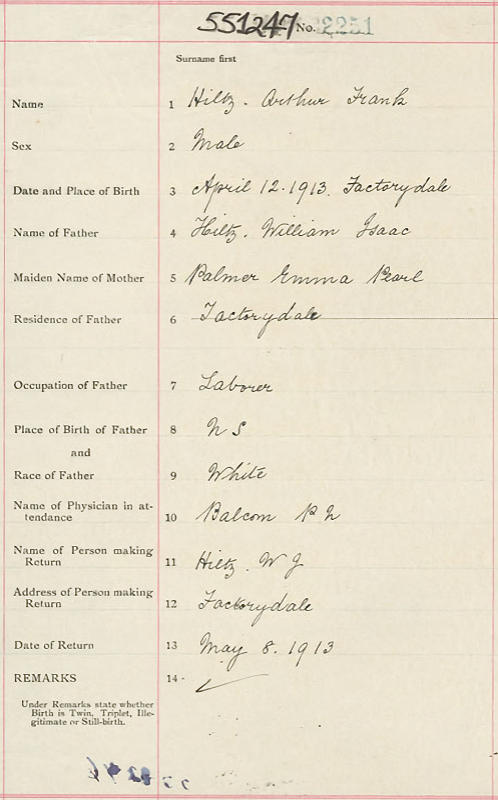 551247 No. 2251
Surname first
Name 1 Hiltz. Arthur Frank
Sex 2 Male
Date and Place of Birth 3 April 12. 1913. Factorydale
Name of Father 4 Hiltz. William Isaac
Maiden Name of Mother 5 Palmer Emma Pearl
Residence of Father 6 Factorydale
Occupation of Father 7 Laborer
Place of Birth of Father 8 N S
and
Race of Father 9 White
Name of Physician in at-
tendance 10 Balcom P N
Name of Person making
Return 11 Hiltz. W J
Address of Person making
Return 12 Factorydale
Date of Return 13 May 8. 1913
REMARKS 14 -
Under Remarks state whether
Birth is Twin, Triplet, Ille-
gitimate or Still-birth.